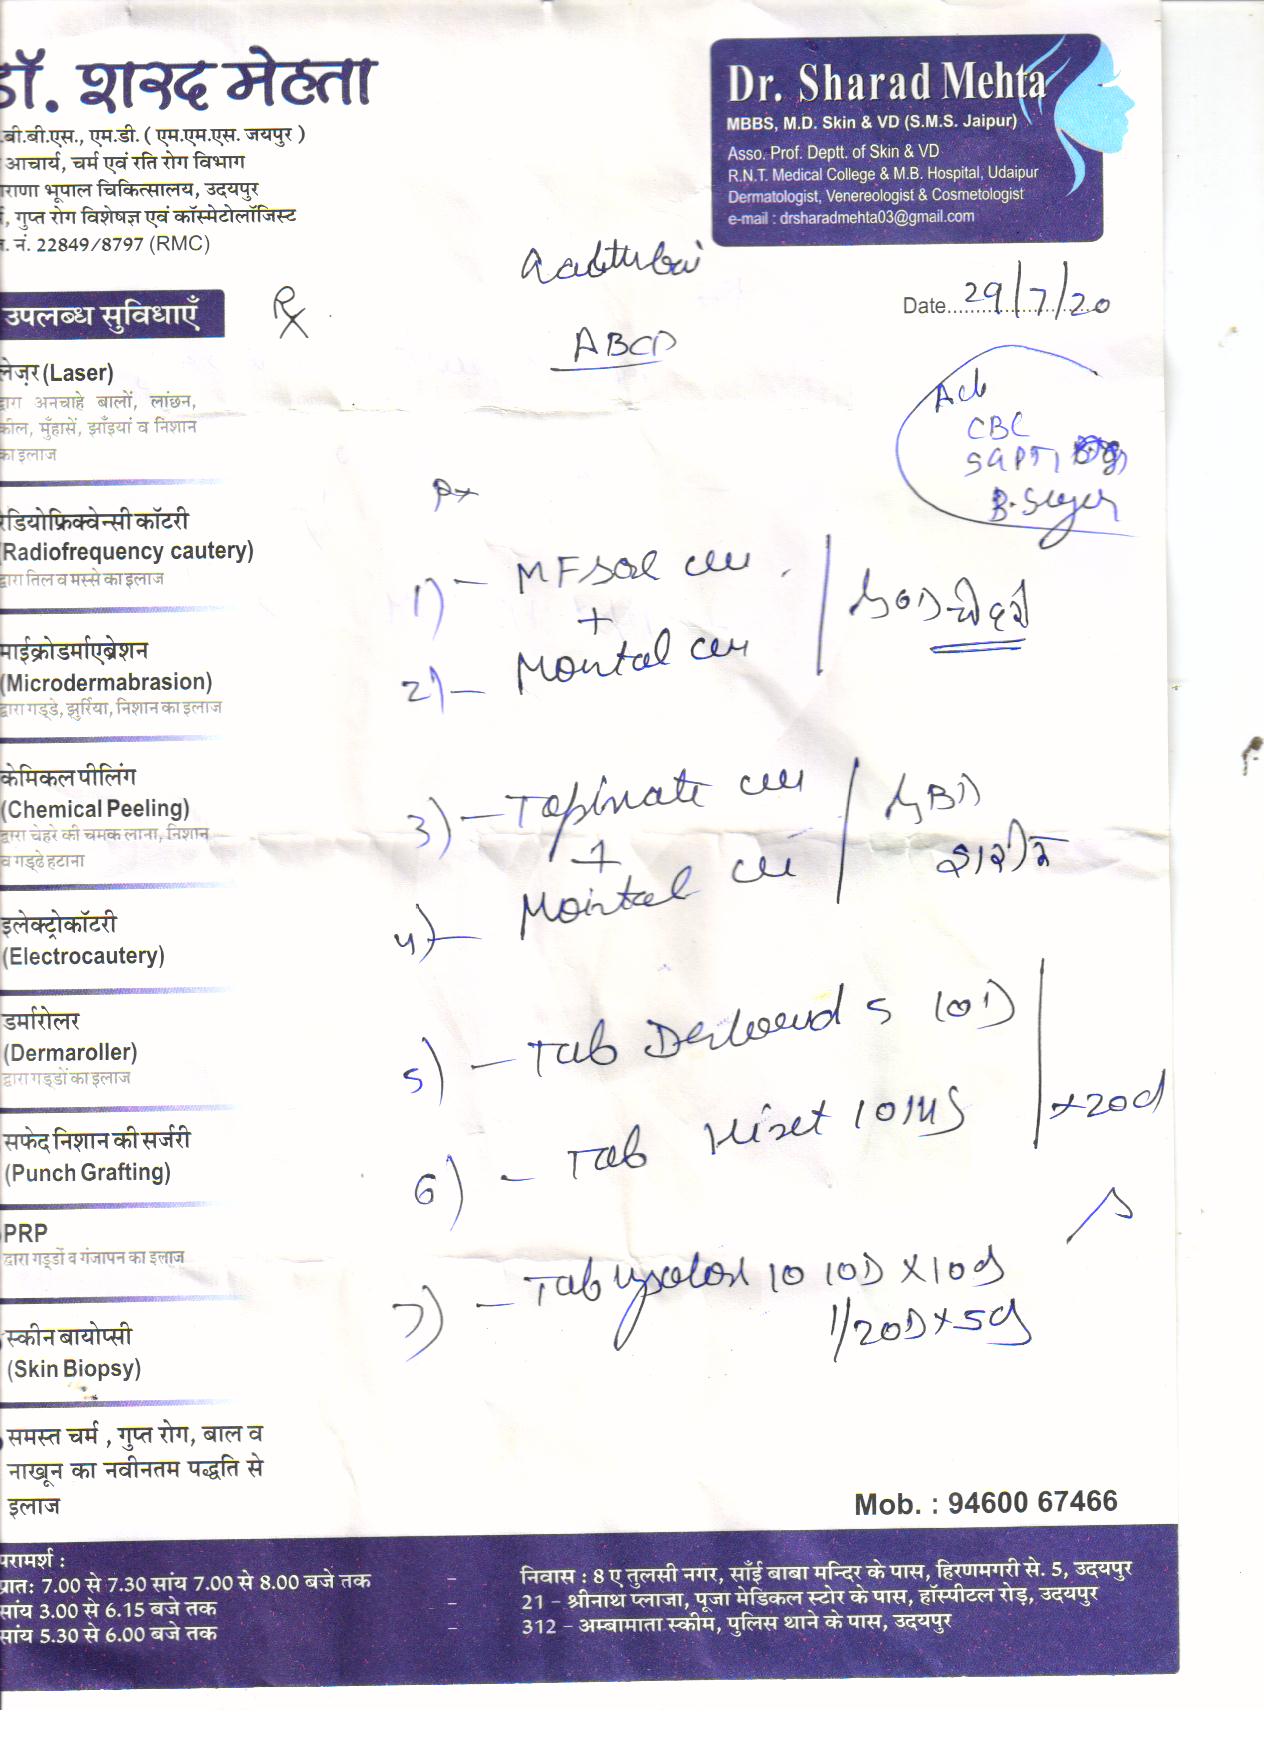 डॉ. शरद मेहता
.बी.बी.एस., एम.डी. ( एम.एम.एस. जयपुर )
आचार्य, चर्म एवं रति रोग विभाग
राणा भूपाल चिकित्सालय, उदयपुर
, गुप्त रोग विशेषज्ञ एवं कॉस्मेटोलॉजिस्ट
. नं. 22849/8797 (RMC)
Dr. Sharad Mehta
MBBS, M.D. Skin & VD (S.M.S. Jaipur)
Asso. Prof. Deptt. of Skin & VD
R.N.T. Medical College & M.B. Hospital, Udaipur
Dermatologist, Venereologist & Cosmetologist
e-mail : drsharadmehta03@gmail.com
Date 29/7/20
ABCD
CBC
SGPT
B. Sugar
Rx
1) -
+
2) -
OD चेहरे
3) - Topinate
+
4) -
BD
शरीर
5) - Tab 5 1OD
6) - Tab Hiset 10MG
x20d
7) - Tab 10 1OD x10d
1/2OD x5d
उपलब्ध सुविधाएँ
Rx
लेज़र (Laser)
द्वारा अनचाहे बालों, लांछन,
कील, मुँहासें, झाँइयां व निशान
का इलाज
रेडियोफ्रिक्वेन्सी कॉटरी
(Radiofrequency cautery)
द्वारा तिल व मस्से का इलाज
माईक्रोडर्माएब्रेशन
(Microdermabrasion)
द्वारा गड्डे, झुर्रिया, निशान का इलाज
केमिकल पीलिंग
(Chemical Peeling)
द्वारा चेहरे की चमक लाना, निशान
व गड्ढे हटाना
इलेक्ट्रोकॉटरी
(Electrocautery)
डर्मारोलर
(Dermaroller)
द्वारा गड्डों का इलाज
सफेद निशान की सर्जरी
(Punch Grafting)
PRP
द्वारा गड्डों व गंजापन का इलाज
स्कीन बायोप्सी
(Skin Biopsy)
समस्त चर्म , गुप्त रोग, बाल व
नाखून का नवीनतम पद्धति से
इलाज
Mob. : 94600 67466
परामर्श :
प्रातः 7.00 से 7.30 सांय 7.00 से 8.00 बजे तक - निवास : 8 ए तुलसी नगर, साँई बाबा मन्दिर के पास, हिरणमगरी से. 5, उदयपुर
सांय 3.00 से 6.15 बजे तक - 21 – श्रीनाथ प्लाजा, पूजा मेडिकल स्टोर के पास, हॉस्पीटल रोड़, उदयपुर
सांय 5.30 से 6.00 बजे तक - 312 – अम्बामाता स्कीम, पुलिस थाने के पास, उदयपुर